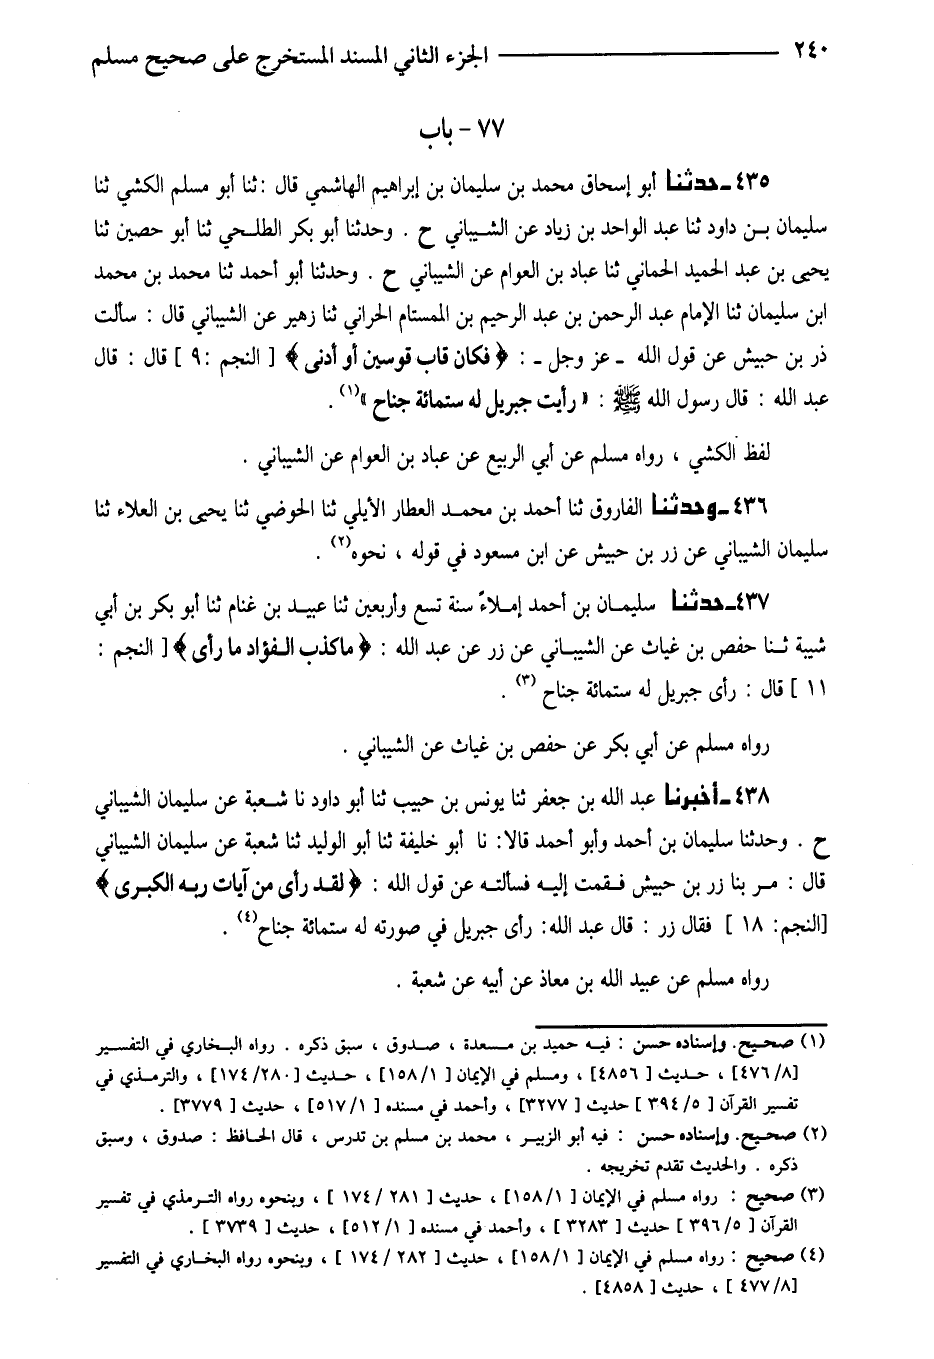 ٢٤٠ الجزء الثاني المسند المستخرج على صحيح مسلم
٧٧ - باب
٤٣٥ـ حدثنا أبو إسحاق محمد بن سليمان بن إبراهيم الهاشمي قال : ثنا أبو مسلم الكشي ثنا
سليمان بـن داود ثنا عبد الواحد بن زياد عن الشيباني ح . وحدثنا أبو بكر الطلحي ثنا أبو حصين ثنا
يحيى بن عبد الحميد الحماني ثنا عباد بن العوام عن الشيباني ح . وحدثنا أبو أحمد ثنا محمد بن محمد
ابن سليمان ثنا الإمام عبد الرحمن بن عبد الرحيم بن المستام الحراني ثنا زهير عن الشيباني قال : سألت
ذر بن حبيش عن قول الله ـ عز وجل ـ : ﴿ فكان قاب قوسين أو أدنى ﴾ [ النجم : ٩ ] قال : قال
عبد الله : قال رسول الله ﷺ : « رأيت جبريل له ستمائة جناح »(١) .
لفظ الكشي ، رواه مسلم عن أبي الربيع عن عباد بن العوام عن الشيباني .
٤٣٦ـ وحدثنا الفاروق ثنا أحمد بن محمـد العطار الأيلي ثنا الحوضي ثنا يحيى بن العلاء ثنا
سليمان الشيباني عن زر بن حبيش عن ابن مسعود في قوله ، نحوه(٢) .
٤٣٧ـ حدثنا سليمـان بن أحمد إمـلاءً سنة تسع وأربعين ثنا عبيـد بن غنام ثنا أبو بكر بن أبي
شيبة ثـنا حفص بن غياث عن الشيبـاني عن زر عن عبد الله : ﴿ ماكذب الـفؤاد ما رأى ﴾ [ النجم :
١١ ] قال : رأى جبريل له ستمائة جناح (٣) .
رواه مسلم عن أبي بكر عن حفص بن غياث عن الشيباني .
٤٣٨ـ أخبرنا عبد الله بن جعفر ثنا يونس بن حبيب ثنا أبو داود نا شـعبة عن سليمان الشيباني
ح . وحدثنا سليمان بن أحمد وأبو أحمد قالا: نا أبو خليفة ثنا أبو الوليد ثنا شعبة عن سليمان الشيباني
قال : مـر بنا زر بن حبيش فـقمت إليـه فسألتـه عن قول الله : ﴿ لقـد رأى من آيات ربـه الكبرى ﴾
[النجم: ١٨ ] فقال زر : قال عبد الله: رأى جبريل في صورته له ستمائة جناح(٤) .
رواه مسلم عن عبيد الله بن معاذ عن أبيه عن شعبة .
(١) صحيح. وإسناده حسن : فيـه حميد بن مـسعدة ، صـدوق ، سبق ذكره . رواه البـخاري في التفسير
[٤٧٦/٨] ، حـديث [ ٤٨٥٦] ، ومسلم في الإيمان [١٥٨/١] ، حـديث [١٧٤/٢٨٠] ، والترمـذي في
تفسير القرآن [ ٣٩٤/٥ ] حديث [ ٣٢٧٧] ، وأحمد في مسنده [ ٥١٧/١] ، حديث [ ٣٧٧٩] .
(٢) صحيح. وإسناده حسن : فيه أبو الزبيـر ، محمد بن مسلم بن تدرس ، قال الحـافظ : صدوق ، وسبق
ذكره . والحديث تقدم تخريجه .
(٣) صحيح : رواه مسلم في الإيمان [ ١٥٨/١] ، حديث [ ٢٨١ / ١٧٤ ] ، وبنحوه رواه الترمذي في تفسير
القرآن [ ٣٩٦/٥ ] حديث [ ٣٢٨٣ ] ، وأحمد في مسنده [ ٥١٢/١] ، حديث [ ٣٧٣٩ ] .
(٤) صحيح : رواه مسلم في الإيمان [ ١٥٨/١] ، حديث [ ٢٨٢ / ١٧٤ ] ، وبنحوه رواه البخاري في التفسير
[٤٧٧/٨ ] ، حديث [ ٤٨٥٨] .